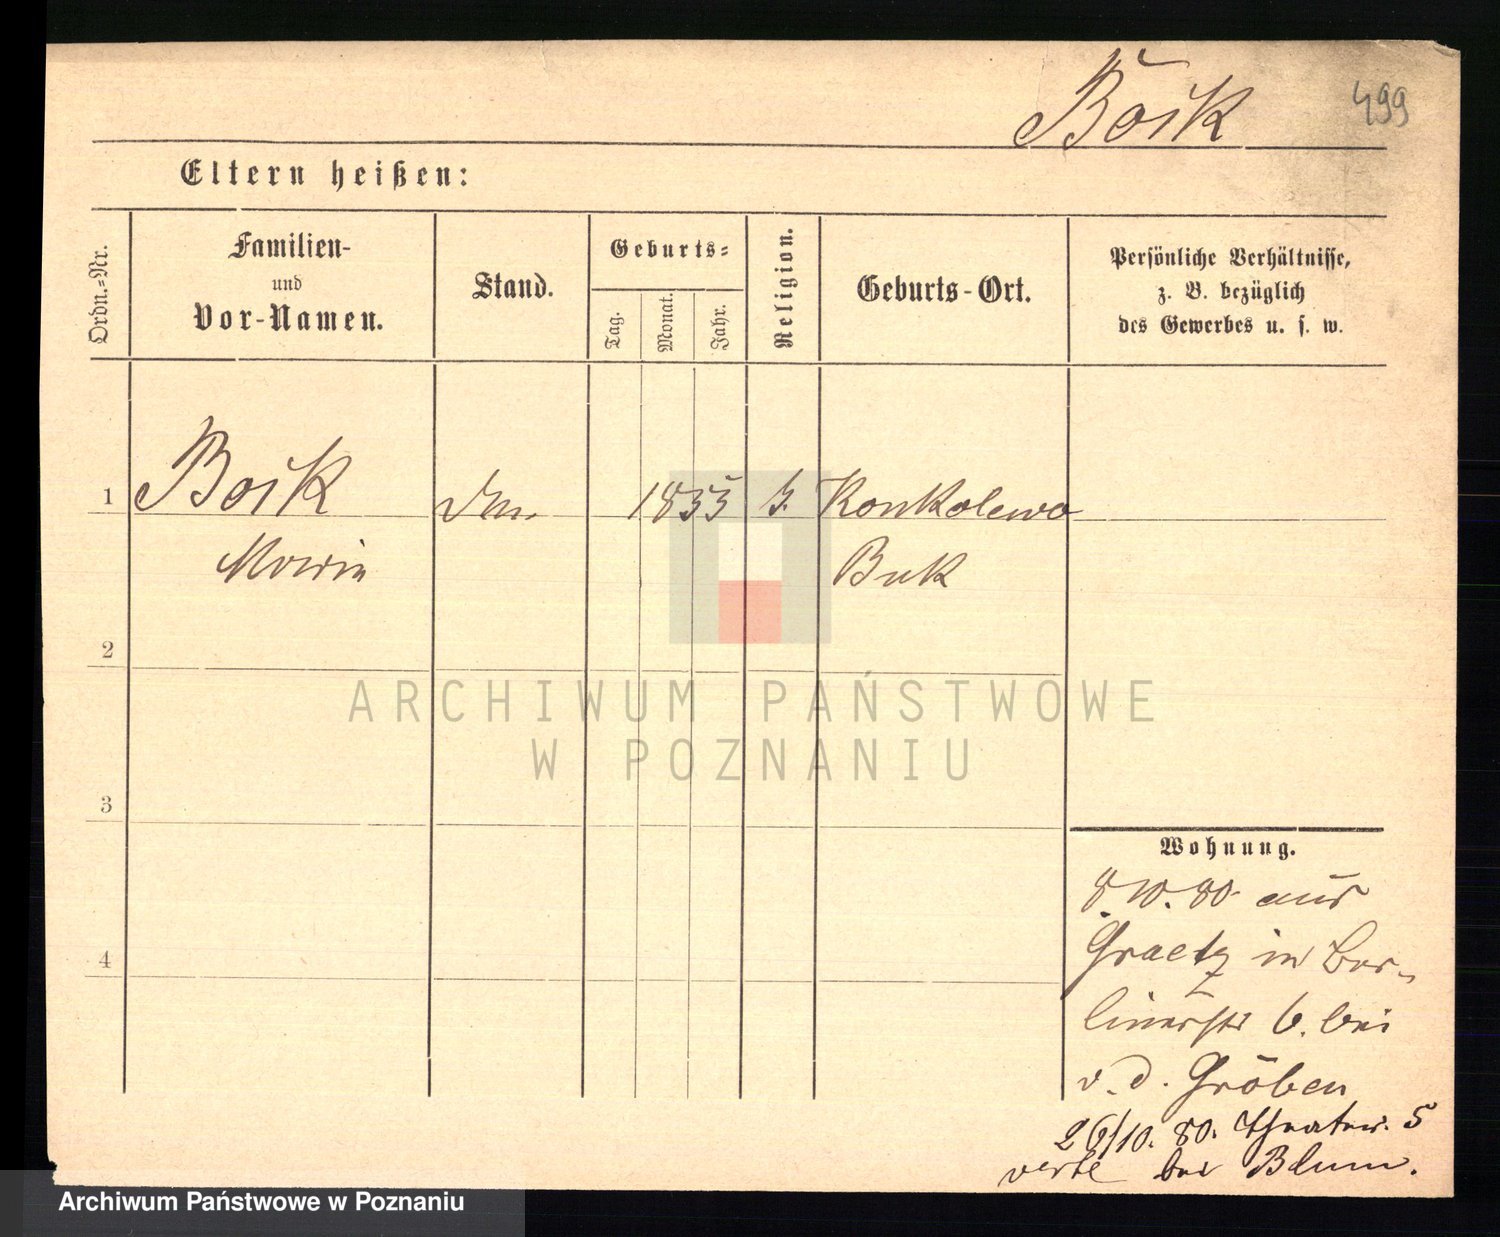 Bŏsk 499
Eltern heißen:
Ordn.-Nr.
Familien-
und
Vor-Namen.
Stand.
Geburts-
Tag.
Monat.
Jahr.
Religion.
Geburts-Ort.
Persönliche Verhältnisse,
z. B. bezüglich
des Gewerbes u. s. w.
1 1855 Konkolewo
Buk
2
3
4
ARCHIWUM PAŃSTWOWE
W POZNANIU
Wohnung.
8.10.80. aus
Graetz in Ber-
linerstr 6. bei
v. d. Gröben
26/10. 80. Theaterstr. 5
verte bei Blum.
Archiwum Państwowe w Poznaniu